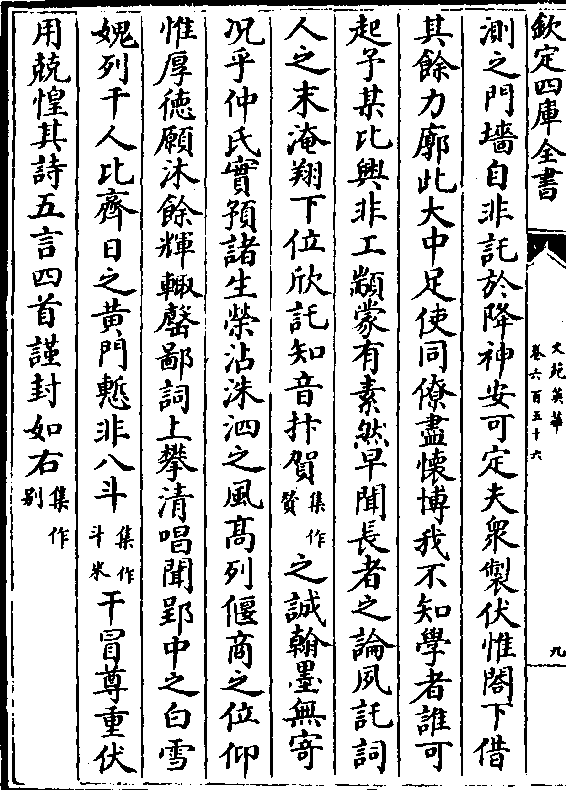 欽定四庫全書
文苑英華
卷六百五十六
九
測之門墻自非託於降神安可定夫衆製伏惟閤下借
其餘力廓此大中足使同僚盡懷博我不知學者誰可
起予某比興非工顓蒙有素然早聞長者之論夙託詞
人之末淹翔下位欣託知音抃賀集作賛之誠翰墨無寄
况乎仲氏實預諸生榮沾洙泗之風髙列偃商之位仰
惟厚徳願沐餘輝輙罄鄙詞上攀清唱聞郢中之白雪
媿列千人比齊日之黄門慙非八斗集作斗米干冒尊重伏
用兢惶其詩五言四首謹封如右集作别